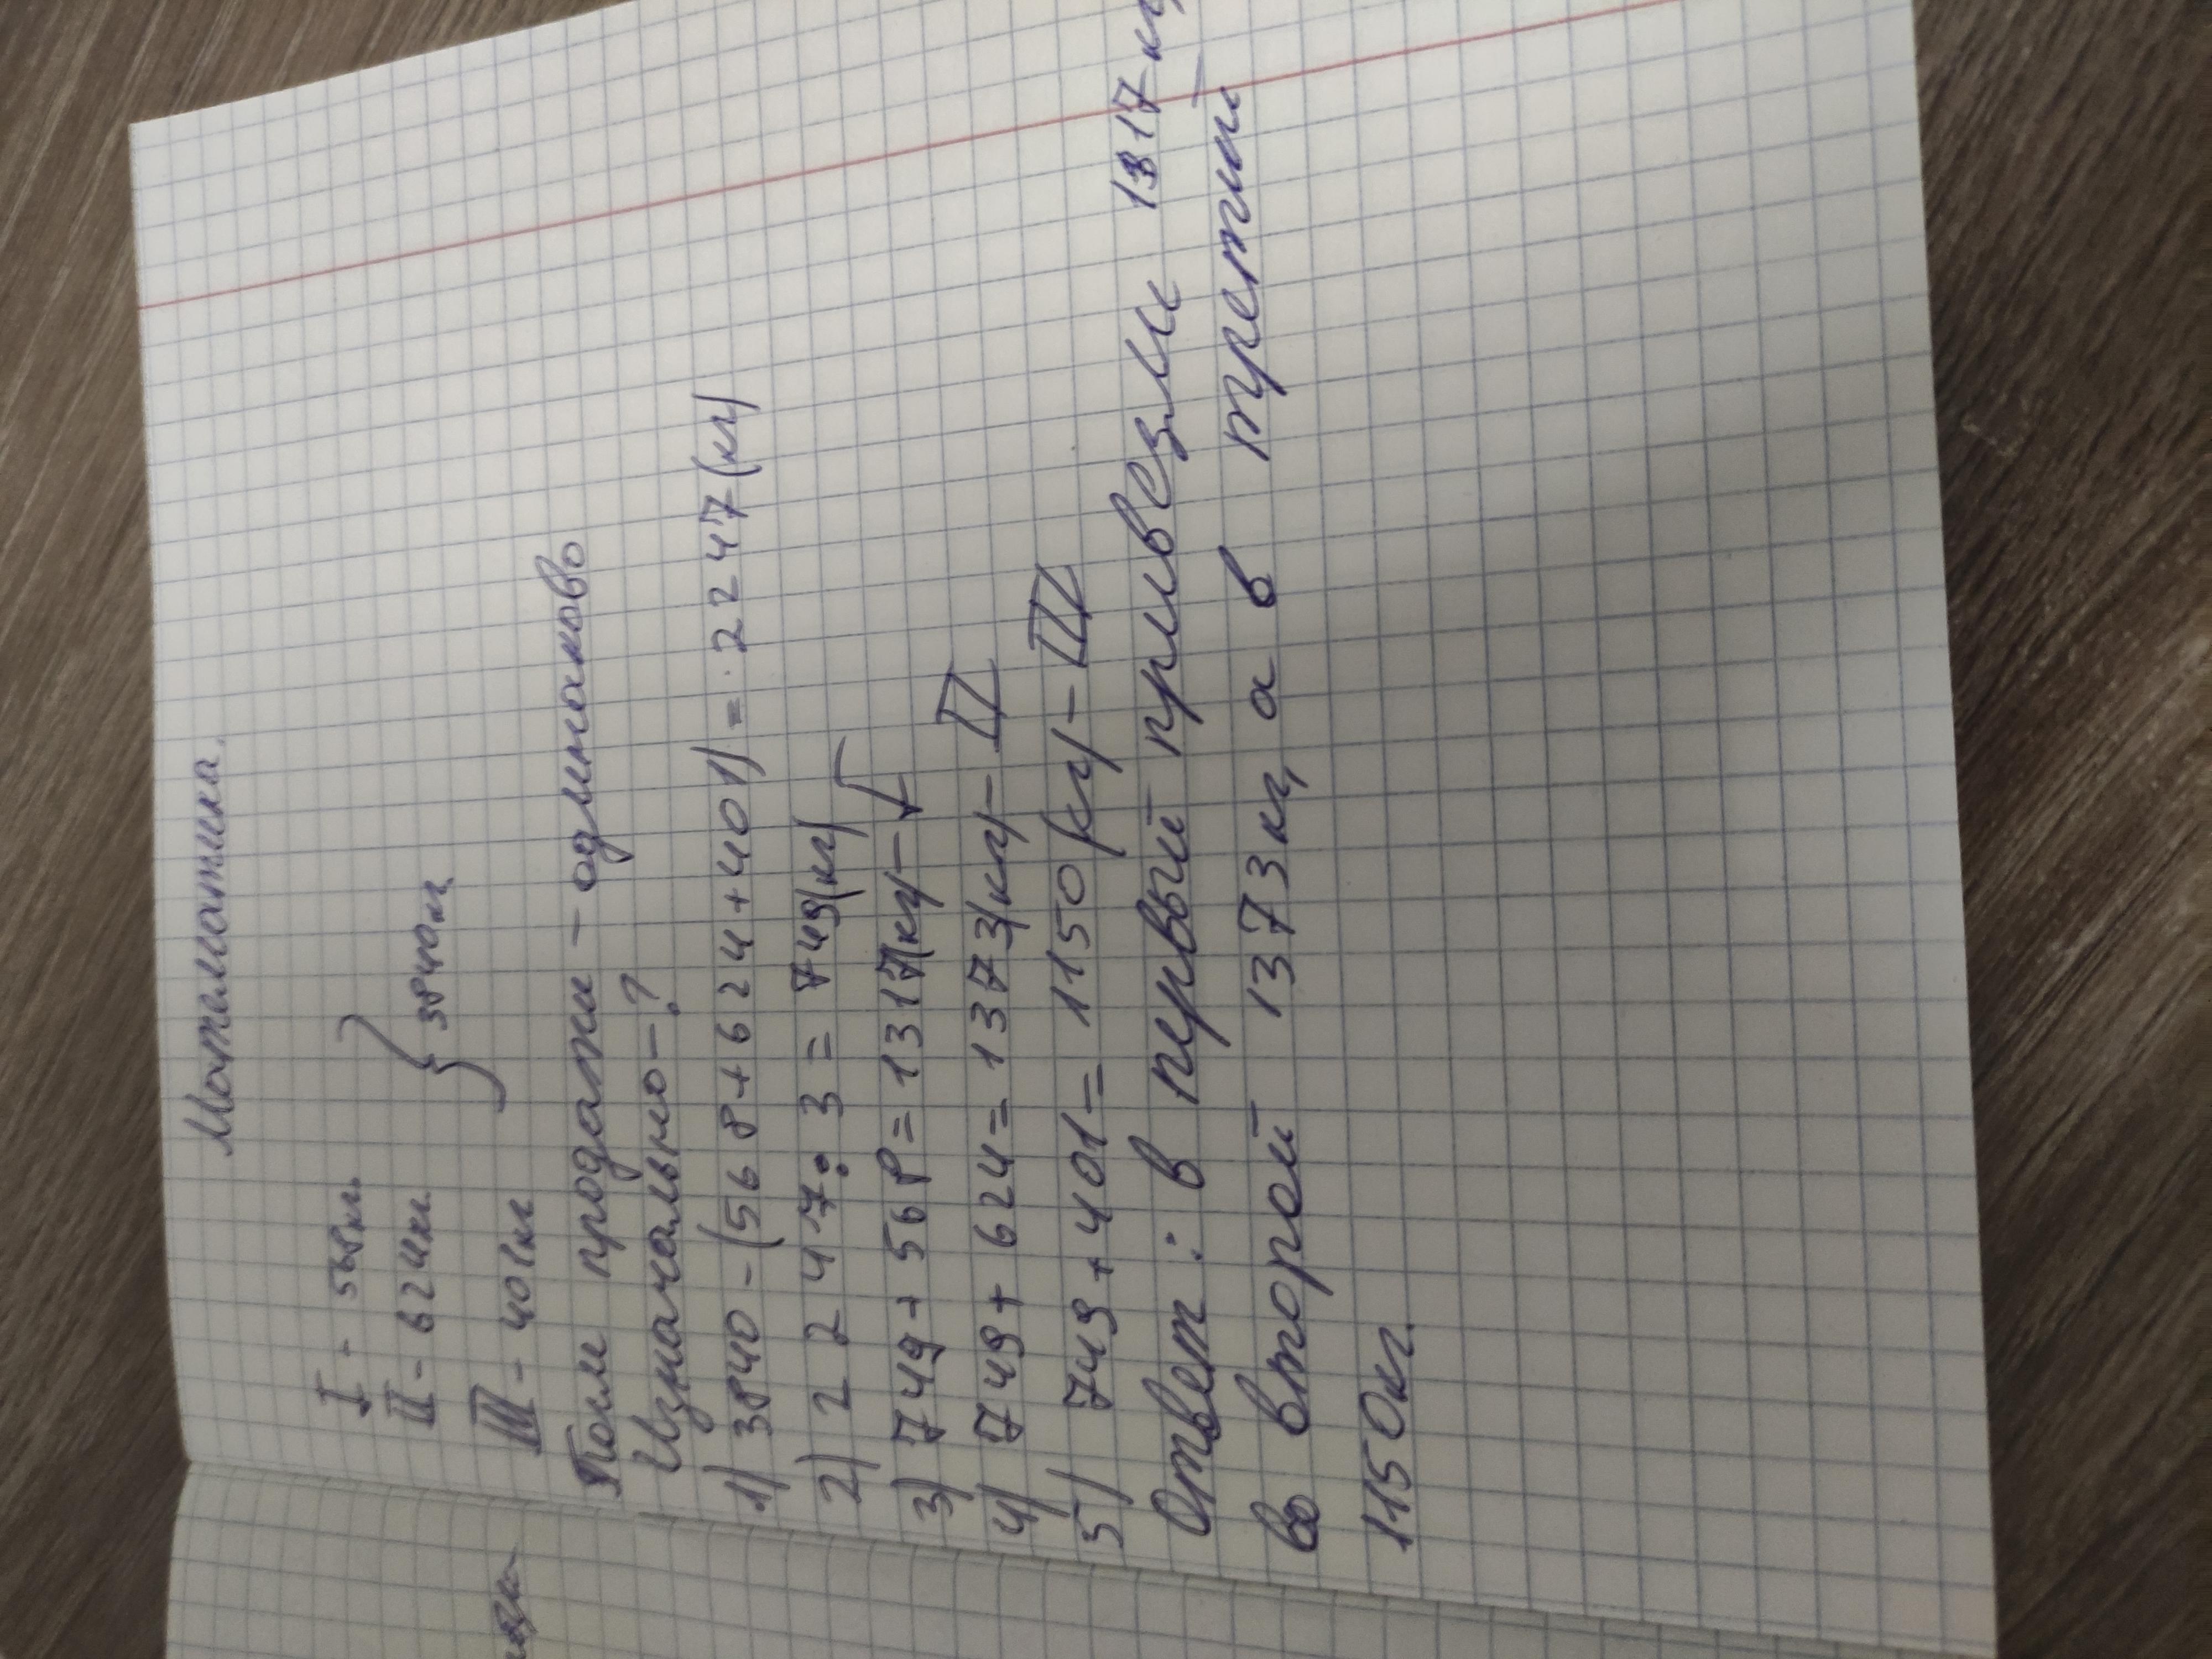 Математика.
I - 568кг.
II - 624кг. } 3840кг.
III - 401кг
Посли продажи - одинаково
Изначально - ?
1) 3840 - (568+624+401) = 2247(кг)
2) 2247:3 = 749(кг)
3) 749+568=1317(кг) - I
4) 749+624=1373(кг) - II
5) 749+401=1150(кг) - III
Ответ: в первый привезли 1317кг,
во второй 1373кг, а в третий
1150кг.